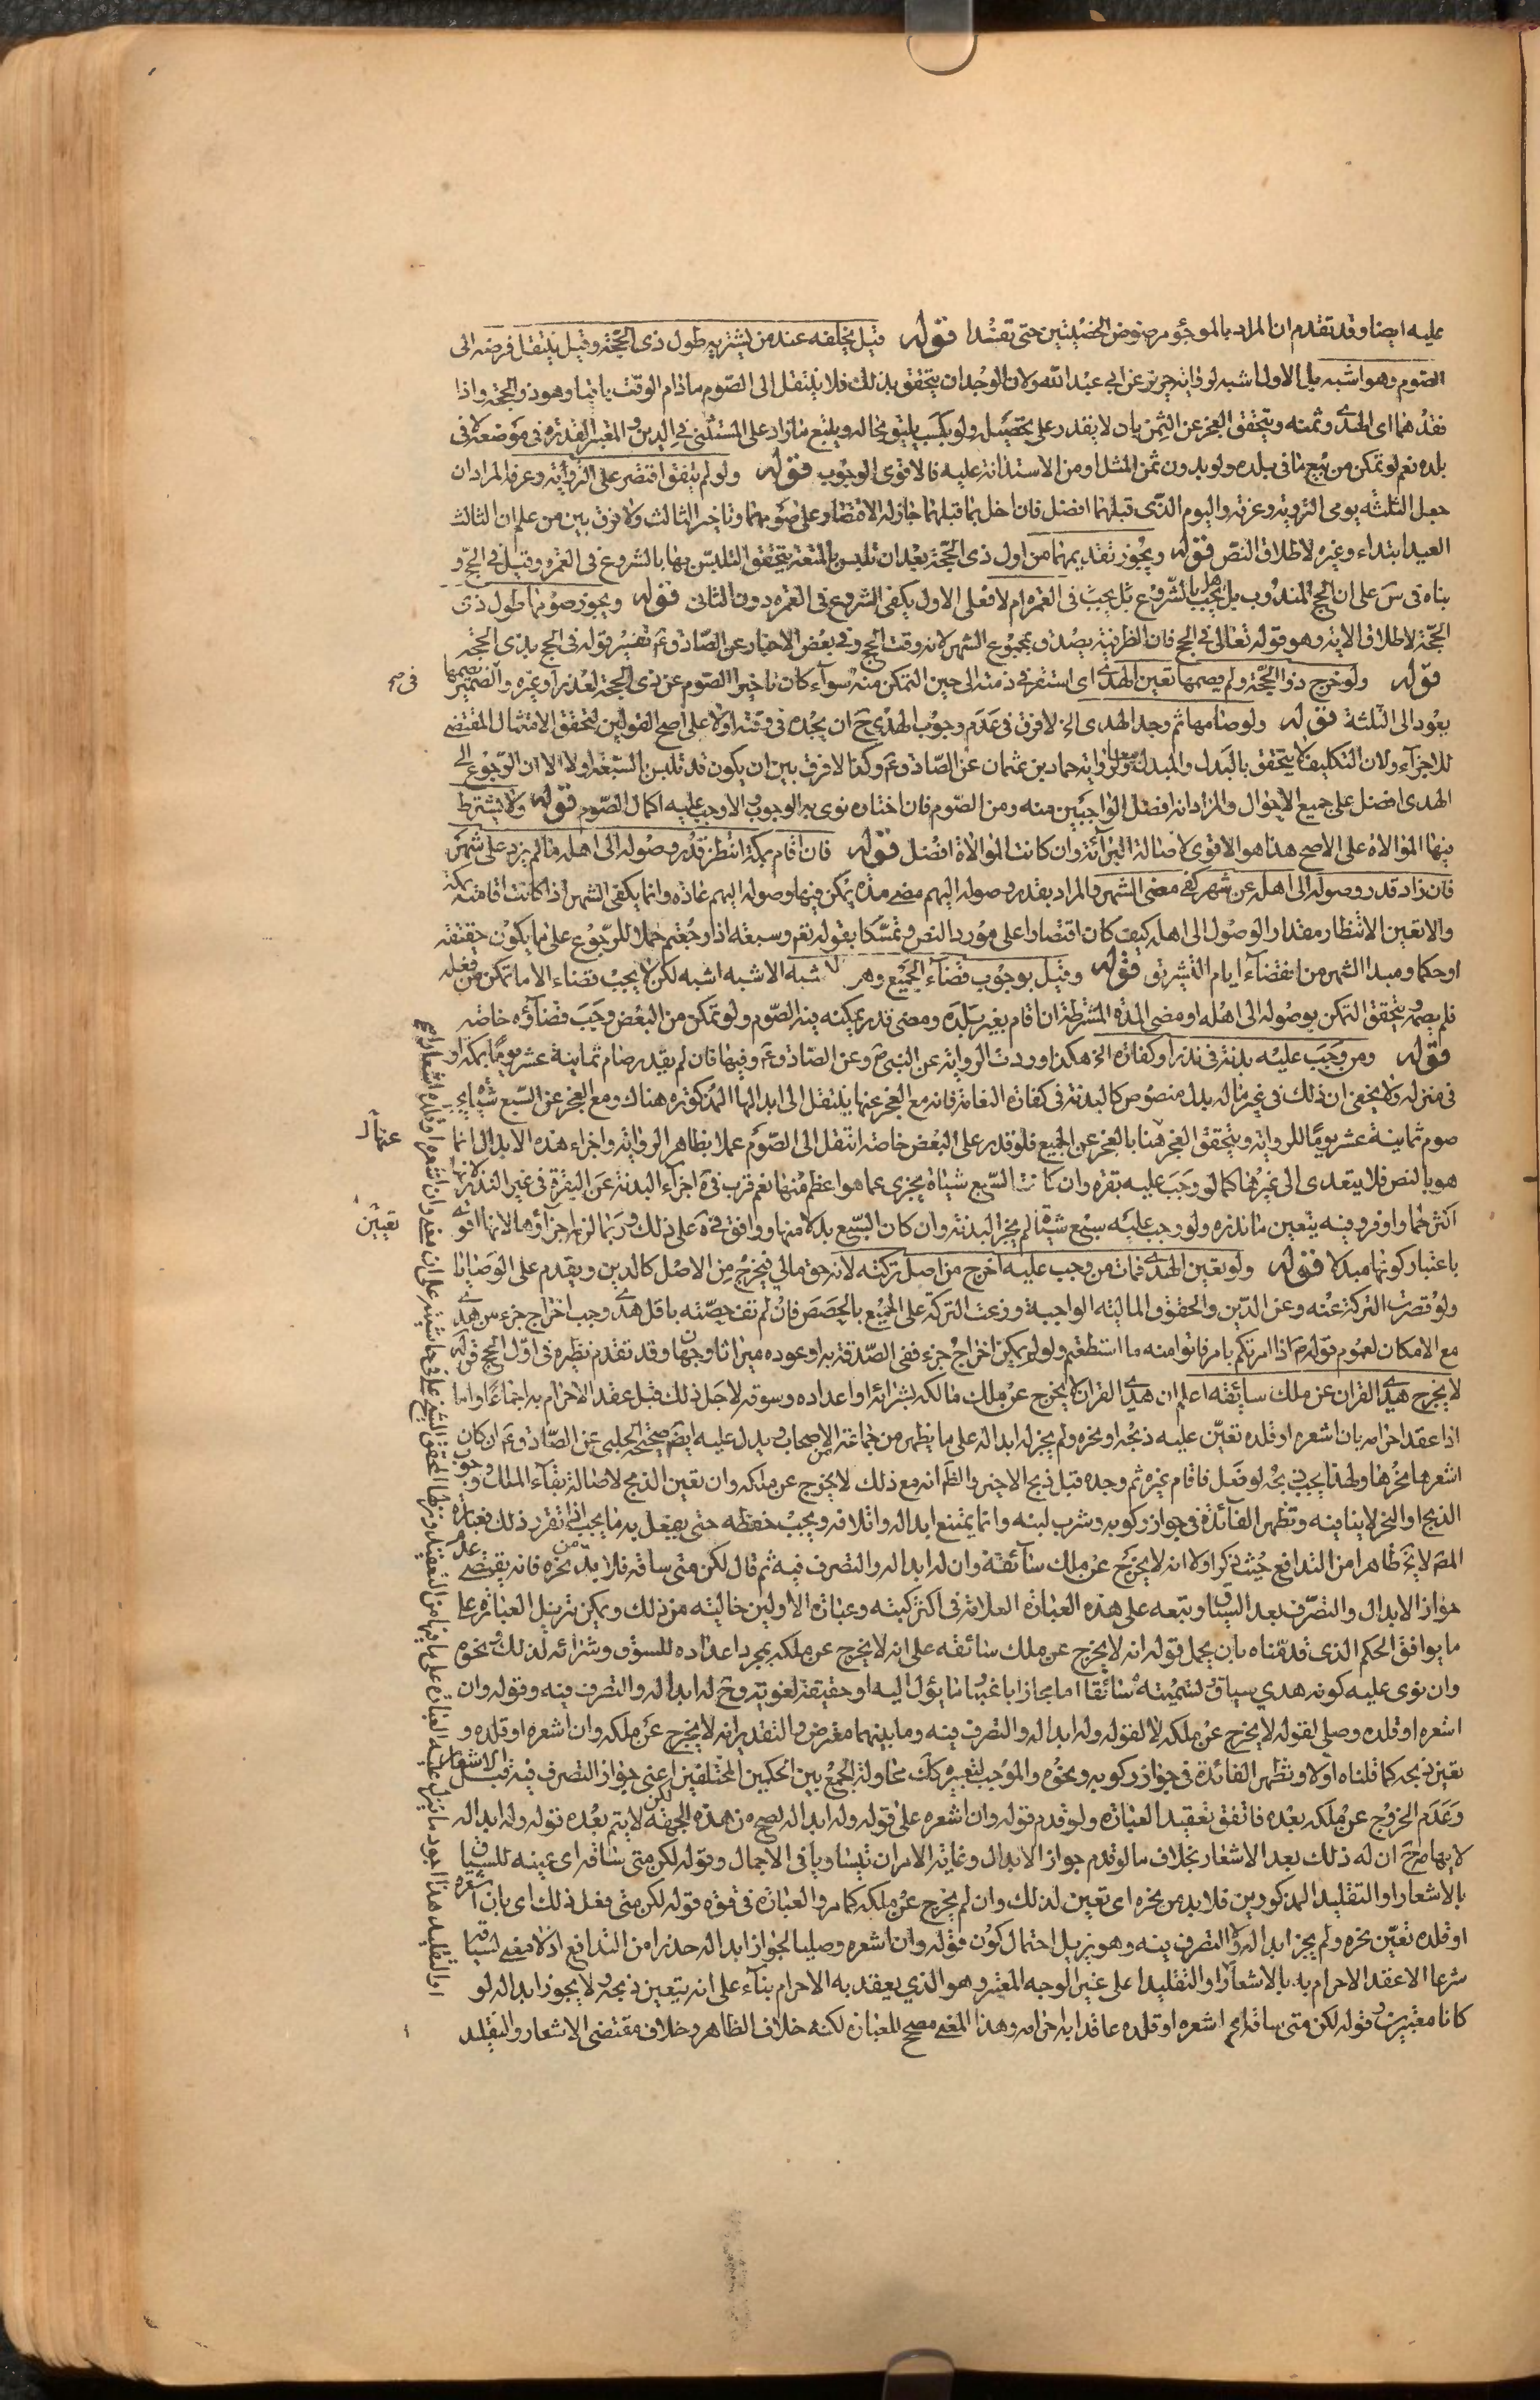 عليه ايضا وقد تقدم ان المراد بالموجؤ مرضوض الخصيتين حتى تفسدا قوله قيل يخلفه عند من يشتريه طول ذى الحجة وقيل ينتقل فرضه الى
الصوم وهو اشبه بل الاول اشبه لرواية حريز عن ابى عبد الله ولان الوجدان يتحقق بذلك فلا ينتقل الى الصوم مادام الوقت باقيا وهو ذو الحجة واذا
فقدهما اى الهدى وثمنه ويتحقق العجز عن الثمن بان لا يقدر على تحصيله ولو بكسب يليق بحاله وببيع ما زاد على المستثنى فى الدين والمعتبر القدرة فى موضعه لا فى
بلده نعم لو تمكن من بيع ما فى بلده ولو بدون ثمن المثل او من الاستدانة عليه فالاقوى الوجوب قوله ولو لم يتفق اقتصر على التروية وعرفة المراد ان
جعل الثلثة يومى التروية وعرفة واليوم الذى قبلهما افضل فان اخل بما قبلهما جاز له الاقتصار على صومهما وتاخير الثالث ولا فرق بين من علم ان الثالث
العيد ابتداء وغيره لاطلاق النص قوله ويجوز تقديمها من اول ذى الحجة بعد ان تلبس بالمتعة يتحقق التلبس بها بالشروع فى العمرة وقيل فى الحج و
بناه فى س على ان الحج المندوب هل يجب بالشروع بل يجب فى العمرة ام لا فعلى الاول يكفى الشروع فى العمرة دون الثانى قوله ويجوز صومها طول ذى
الحجة لاطلاق الاية وهو قوله تعالى فى الحج فان الظرفية يصدق بمجموع الشهر لانه وقت الحج وفى بعض الاخبار عن الصادق ع تفسير قوله فى الحج بذى الحجة
قوله ولو خرج ذو الحجة ولم يصمها تعين الهدى اى استقر فى ذمته الى حين التمكن منه سوآء كان تاخير الصوم عن ذى الحجة لعذر او غيره والضمير فى يصمها
يعود الى الثلثة قوله ولو صامها ثم وجد الهدى الخ لا فرق فى عدم وجوب الهدى ح ان يجده فى وقته او لا على اصح القولين لتحقق الامتثال المقتضى
للاجزآء ولان التكليف لا يتحقق بالبدل والمبدل معا ولرواية حماد بن عثمان عن الصادق ع وكذا لا فرق بين ان يكون قد تلبس بالسبعة او لا الا ان الرجوع الى
الهدى افضل على جميع الاحوال والمراد انه افضل الواجبين منه ومن الصوم فان اختاره نوى به الوجوب والا وجب عليه اكمال الصوم قوله ولا يشترط
فيها الموالاة على الاصح هذا هو الاقوى لاصالة البرآئة وان كانت الموالاة افضل قوله فان اقام بمكة انتظر قدر وصوله الى اهله ما لم يزد على شهر
فان زاد قدر وصوله الى اهله عن شهر كفى مضى الشهر والمراد بقدر وصوله اليهم مضى مدة يمكن فيها وصوله اليهم عادة وانما يكفى الشهر اذا كانت اقامته بمكة
والا تعين الانتظار مقدار الوصول الى اهله كيف كان اقتصارا على مورد النص وتمسكا بقوله تعم وسبعة اذا رجعتم حملا للرجوع على ما يكون حقيقة
او حكما ومبدا الشهر من انقضآء ايام التشريق قوله وقيل بوجوب قضآء الجميع وهو الاشبه الاشبه اشبه لكن لا يجب قضاء الا ما تمكن من فعله
فلم يصمه ويتحقق التمكن بوصوله الى اهله او مضى المدة المشترطة ان اقام بغير بلده ومضى قدر يمكنه فيه الصوم ولو تمكن من البعض وجب قضآؤه خاصة
قوله ومن وجب عليه بدنة فى نذر او كفارة الخ هكذا وردت الرواية عن النبى ص وعن الصادق ع وفيها فان لم يقدر صام ثمانية عشر يوما بمكة او
فى منزله ولا يخفى ان ذلك فى غير ما له بدل منصوص كالبدنة فى كفارة النعامة فانه مع العجز عنها ينتقل الى ابدالها المذكورة هناك ومع العجز عن السبع شياه يجب
صوم ثمانية عشر يوما للرواية ويتحقق العجز هنا بالعجز عن الجميع فلو قدر على البعض خاصة انتقل الى الصوم عملا بظاهر الرواية واجزاء هذه الابدال انما
هو بالنص فلا يتعدى الى غيرها كما لو وجب عليه بقرة وان كانت السبع شياه يجزى عما هو اعظم منها نعم قرب فى ة اجزآء البدنة عن البقرة فى غير النذر لانها
اكثر لحما واوفر وفيه يتعين ما نذره ولو وجب عليه سبع شياه لم يجز البدنة وان كان السبع بدلا منها ووافق فى ة على ذلك وربما لزم اجزآؤها لانها اقوى
باعتبار كونها مبدلا قوله ولو تعين الهدى فمات من وجب عليه اخرج من اصل تركته لانه حق مالى فيخرج من الاصل كالدين ويقدم على الوصايا
ولو قصرت التركة عنه وعن الدين والحقوق المالية الواجبة وزعت التركة على الجميع بالحصص فان لم تف حصته باقل هدى وجب اخراج جزء من هدى
مع الامكان لعموم قوله ص اذا امرتكم بامر فاتوا منه ما استطعتم ولو لم يمكن اخراج جزء ففى الصدقة به او عوده ميراثا وجهان وقد تقدم نظيره فى اول الحج قوله
لا يخرج هدى القران عن ملك سائقه اعلم ان هدى القران لا يخرج عن ملك مالكه بشرائه او اعداده وسوقه لاجل ذلك قبل عقد الاحرام به اجماعا واما
اذا عقد احرامه بان اشعره او قلده تعين عليه ذبحه او نحره ولم يجز له ابداله على ما يظهر من جماعة من الاصحاب ويدل عليه ايضم صحيحة الحلبى عن الصادق ع ان كان
اشعرها نحرها ولهذا يجب ذبحه لو ضل فاقام غيره ثم وجده قبل ذبح الاخير والظ انه مع ذلك لا يخرج عن ملكه وان تعين الذبح لاصالة بقآء الملك ووجوب
الذبح او النحر لا ينافيه وتظهر الفآئدة فى جواز ركوبه وشرب لبنه وانما يمتنع ابداله واتلافه ويجب حفظه حتى يفعل به ما يجب اذا تقرر ذلك فعبارة
المصم لا تخ ظاهرا من التدافع حيث ذكر اولا انه لا يخرج عن ملك سآئقه وان له ابداله والتصرف فيه ثم قال لكن متى ساقه فلا بد من نحره فانه يقتضى عدم
جواز الابدال والتصرف بعد السياق وتبعه على هذه العبارة العلامة فى اكثر كتبه وعبارة الاولين خالية من ذلك ويمكن تنزيل العبارة على
ما يوافق الحكم الذى قدمناه بان يحمل قوله انه لا يخرج عن ملك سائقه على انه لا يخرج عن ملكه بمجرد اعداده للسوق وشرائه لذلك ونحوه
وان نوى عليه كونه هدى سياق وتسميته سائقا اما مجازا باعتبار ما يؤل اليه او حقيقة لغوية وح له ابداله والتصرف فيه وقوله وان
اشعره او قلده وصلى لقوله لا يخرج عن ملكه لا لقوله وله ابداله والتصرف فيه وما بينهما معترض والتقدير انه لا يخرج عن ملكه وان اشعره او قلده و
تعين ذبحه كما قلناه اولا وتظهر الفائدة فى جواز ركوبه ونحوه والموجب لتعبيره كك محاولة الجمع بين الحكمين المختلفين اعنى جواز التصرف فيه قبل الاشعار
وعدم الخروج عن ملكه بعده فاتفق تعقيد العبارة ولو قدم قوله وان اشعره على قوله وله ابداله لصح من هذه الجهة لكن لا يتم بعده قوله وله ابداله
لايهامه ح ان له ذلك بعد الاشعار بخلاف ما لو قدم جواز الابدال وغاية الامر ان تيساويا فى الاجمال وقوله لكن متى ساقه اى عينه للسياق
بالاشعار او التقليد المذكورين فلا بد من نحره اى تعين لذلك وان لم يخرج عن ملكه كما مر والعبارة فى قوة قوله لكن متى فعل ذلك اى بان اشعره
او قلده تعين نحره ولم يجز ابداله ولا التصرف فيه وهو يزيل احتمال كون قوله وان اشعره وصليا لجواز ابداله حذرا من التدافع اذ لا معنى لسياقه
شرعا الا عقد الاحرام به بالاشعار او التقليد على غير الوجه المعتبر وهو الذي يعقد به الاحرام بنآء على انه يتعين ذبحه ولا يجوز ابداله لو
كانا معتبرين وقوله لكن متى ساقه اى اشعره او قلده عاقدا به احرامه وهذا المعنى مصحح للعبارة لكنه خلاف الظاهر وخلاف مقتضى الاشعار والتقليد